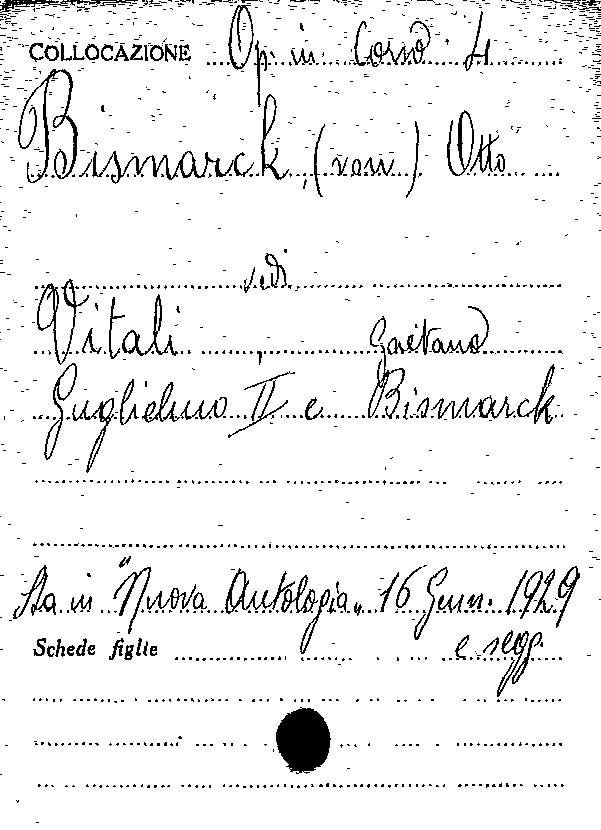 COLLOCAZIONE Op. in Corso 4
Bismarck (von) Otto
vedi
Vitali, Gaetano
Guglielmo II e Bismarck
Sta in "Nuova Antologia" 16 Genn. 1929
Schede figlie e segg.